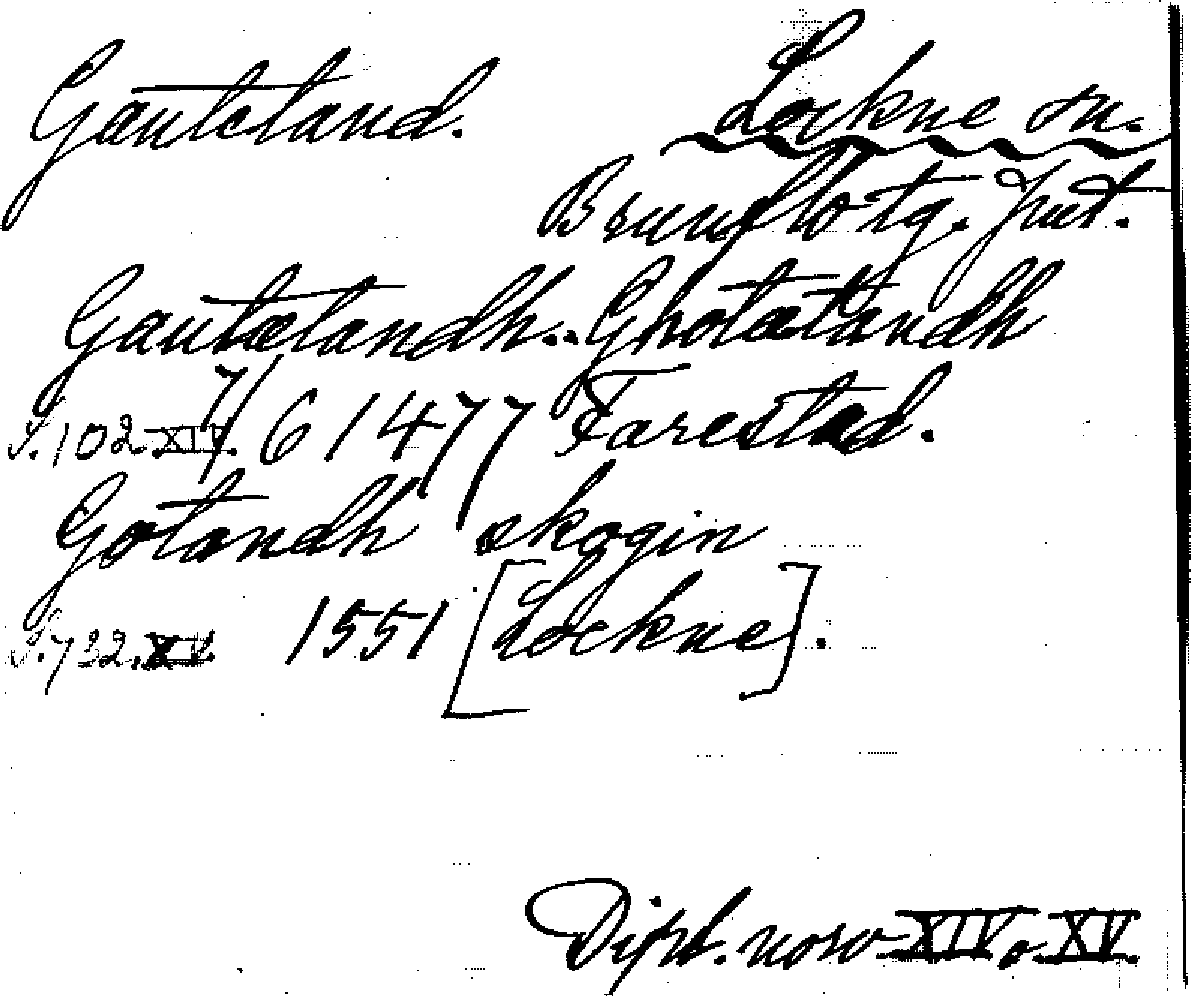 Gauteland. Lockne sn.
Brunflo tg. Jmt.
Gautælandh.. Ghotælandh
S. 102 XIV. 7/6 1477 Farestad.
Gotandh skogin
S. 732. XV. 1551 [Lockne].
Dipl. norv. XIV o. XV.